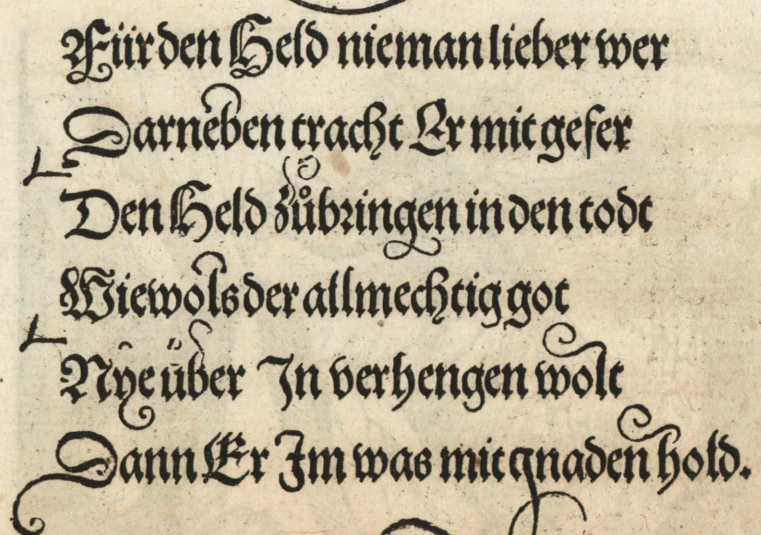 Für den Held nieman lieber wer
Darneben tracht Er mit gefer
Den Held zůbringen in den todt
Wiewols der allmechtig got
Nye über In verhengen wolt
Dann Er Im was mit gnaden hold.